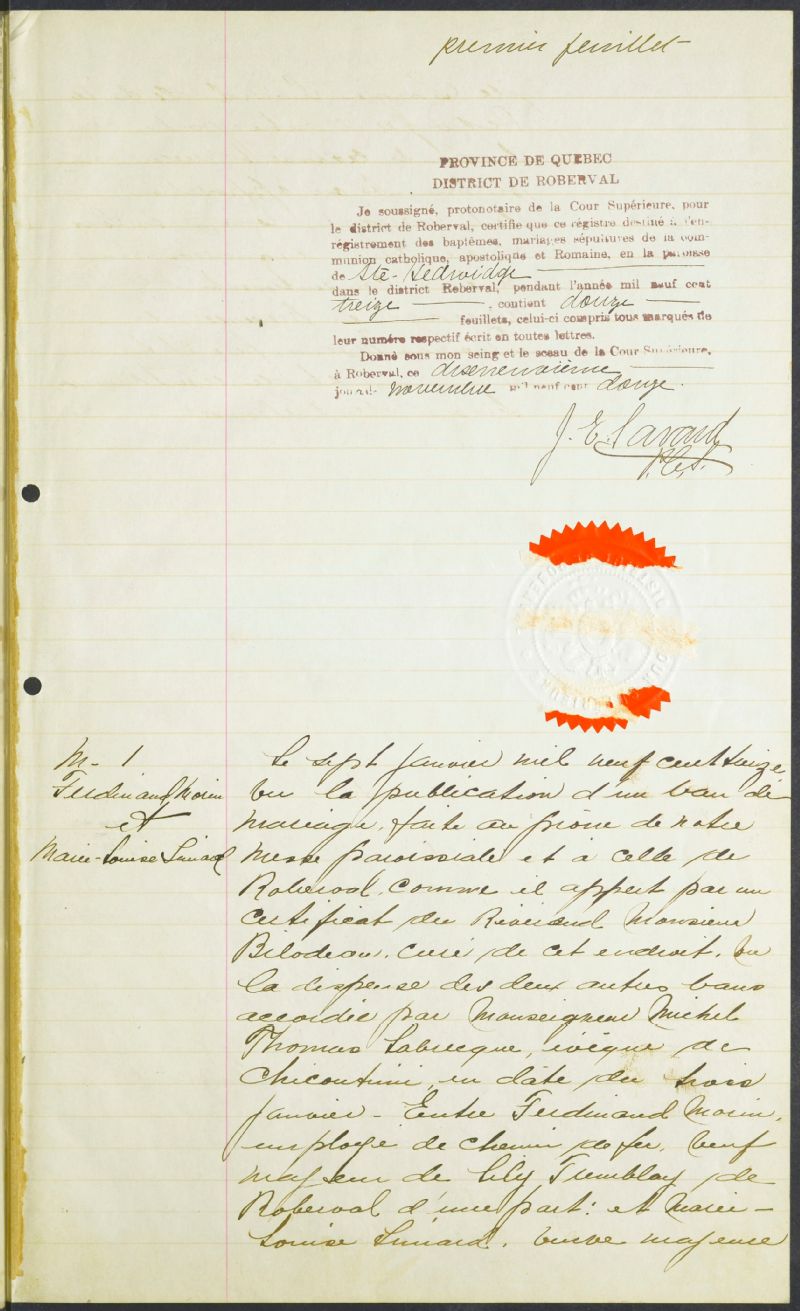 premier feuillet
PROVINCE DE QUEBEC
DISTRICT DE ROBERVAL
Je soussigné, protonotaire de la Cour Supérieure, pour
le district de Roberval, certifie que ce régistre destiné à l'en-
régistrement des baptêmes, mariages sépultures de la com-
munion catholique, apostolique et Romaine, en la paroisse
de Ste-Hedwidge
dans le district Reberval, pendant l'année mil neuf cent
treize, contient douze
feuillets, celui-ci compris tous marqués de
leur numéro respectif écrit en toutes lettres.
Donné sous mon seing et le sceau de la Cour Supérieure,
à Roberval, ce dixneuvième
jour de novembre mil neuf cent douze.
J. E. Savard
P.C.S.
M-1
Ferdinand Morin
et
Marie-Louise Simard
Le sept janvier mil neuf cent treize,
vu la publication d'un ban de
mariage, faite au prône de notre
messe paroissiale et à celle de
Roberval, comme il appert par un
certificat du Révérend Monsieur
Bilodeau, curé de cet endroit, vu
la dispense des deux autres bans
accordée par Monseigneur Michel
Thomas Labrecque, évêque de
Chicoutimi, en date du trois
janvier - Entre Ferdinand Morin,
employé de chemin de fer, veuf
majeur de Lily Tremblay de
Roberval d'une part: et Marie-
Louise Simard, veuve majeure